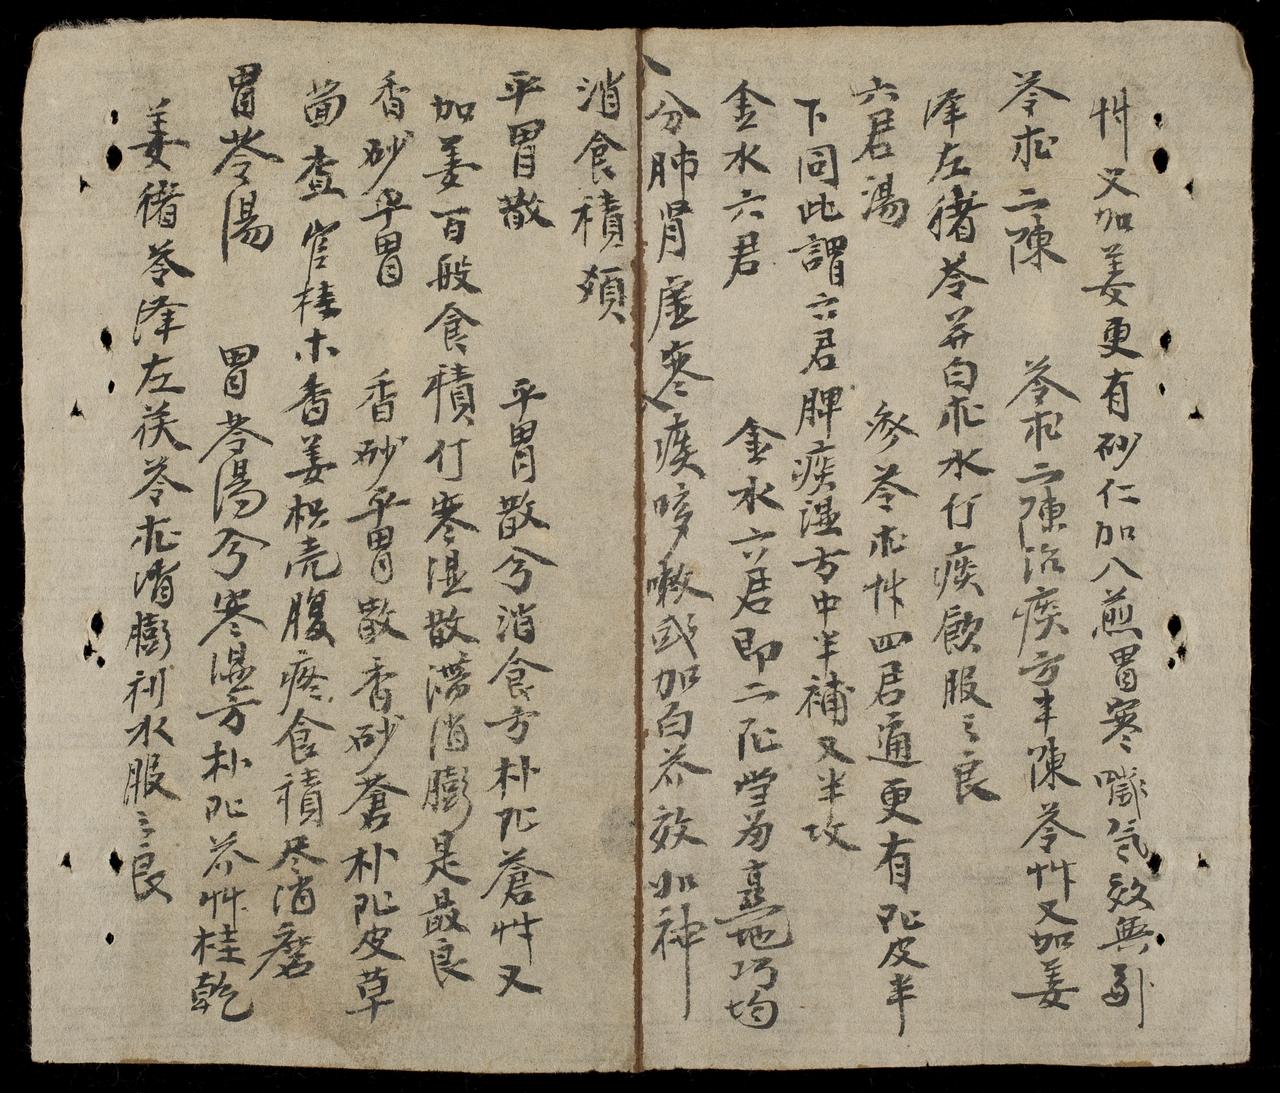 艸又加姜更有砂仁加八煎胃寒噦气效無
苓朮二陳 苓朮二陳治痰方半陳苓艸又加姜
泽左猪苓并白朮水行痰飲服之良
六君湯 參苓朮艸四君通更有阤皮半
下同此謂六君脾痰湿方中半補又半攻
金水六君 金水六君即二阤當为熹地巧均
分肺肾虚寒痰咳嗽或加白芥效如神
消食積類
平胃散 平胃散兮消食方朴阤蒼艸又
加姜百般食積行寒湿散滞消膨是最良
香砂平胃 香砂平胃散香砂蒼朴阤皮草
茴查官桂木香姜枳壳腹疼食積尽消磨
胃苓湯 胃苓湯兮寒湿方朴阤芥艸桂乾
姜猪苓泽左茯苓朮消膨利水服之良